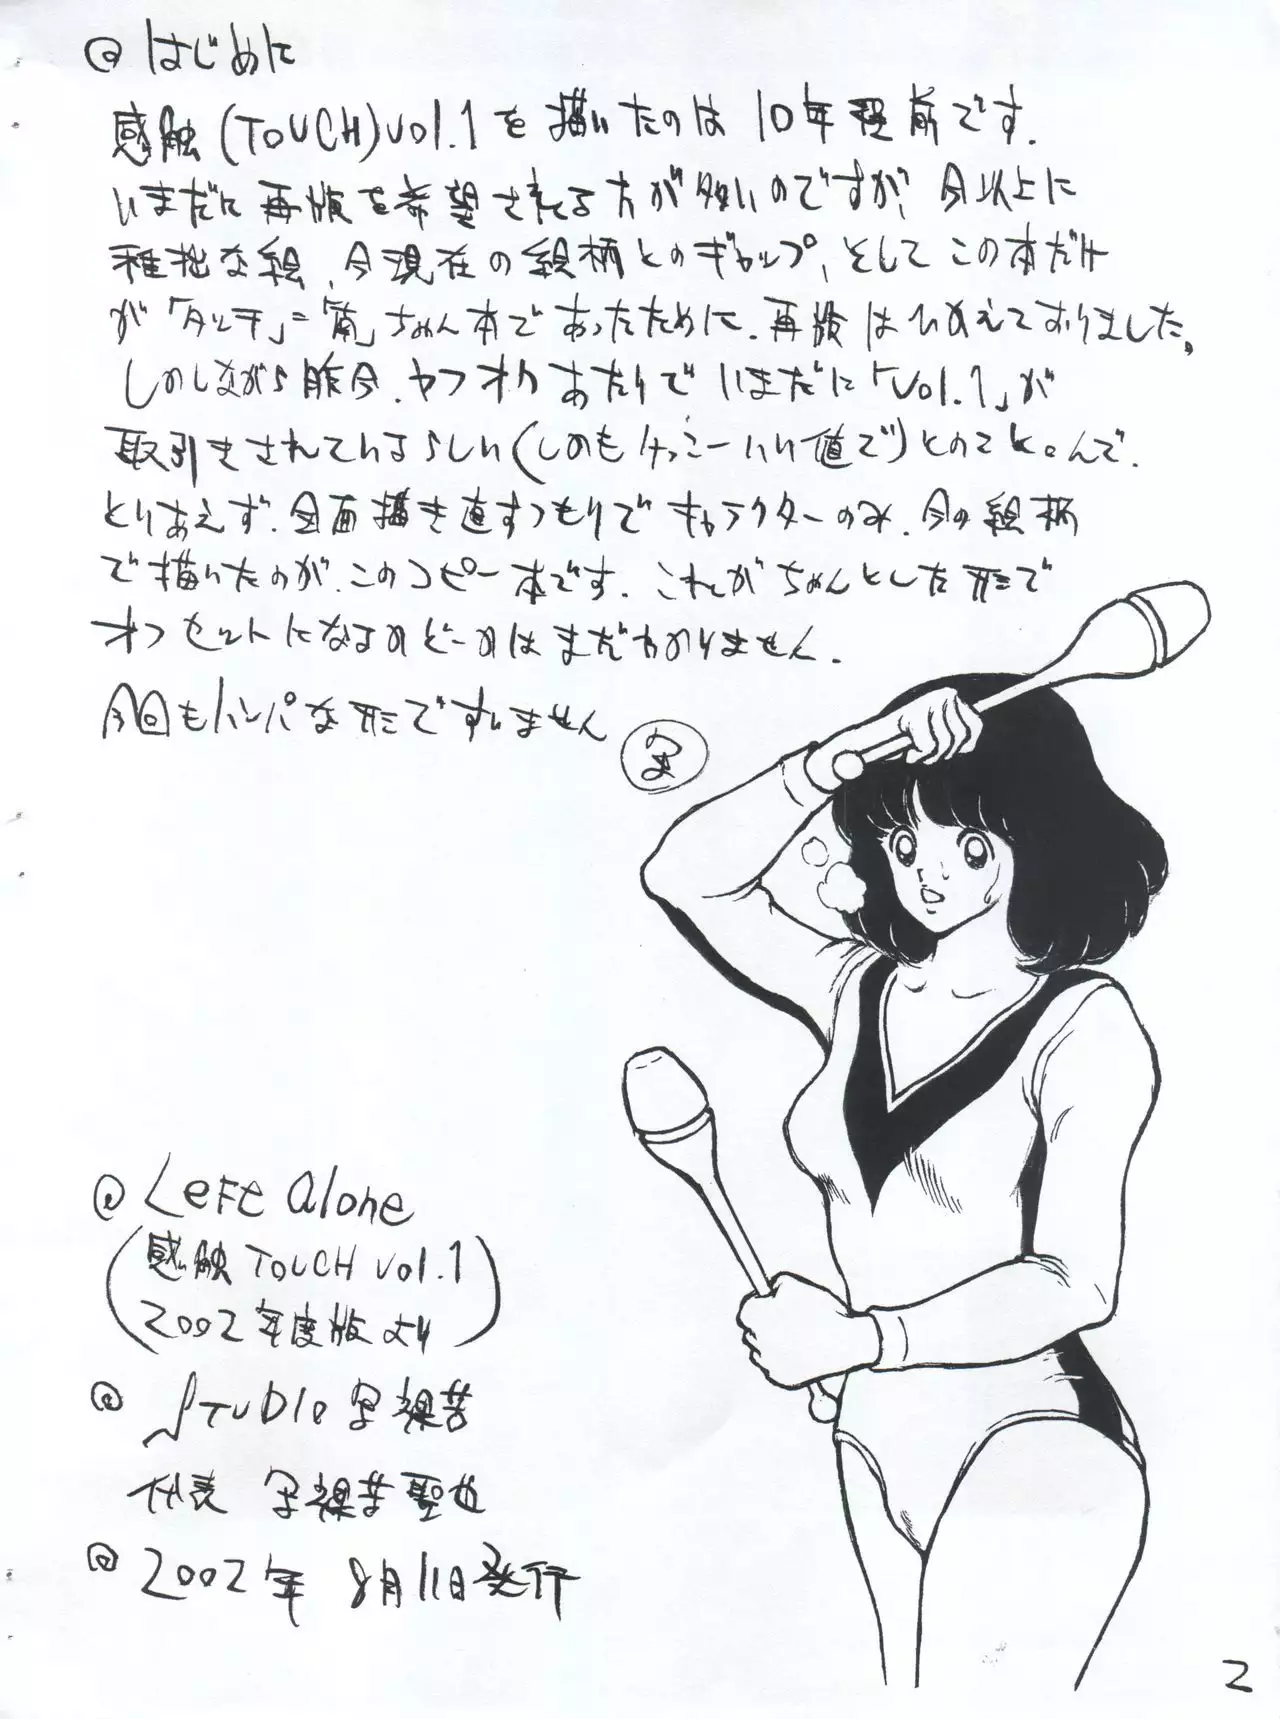 @ はじめに
感触(TOUCH)vol.1を描いたのは10年程前です.
いまだに再販を希望される方が多いのですが、今以上に
稚拙な絵、今現在の絵柄とのギャップ、そしてこの本だけ
が「タッチ」=「南」ちゃん本であったために.再販はひかえておりました。
しかしながら昨今.ヤフオクあたりでいまだに「vol.1」が
取引きされているらしい(しかもけっこーいい値で)とのことなんで.
とりあえず.全面描き直すつもりでキャラクターのみ.今の絵柄
で描いたのが.このコピー本です.これがちゃんとした形で
オフセットになるかどーかはまだわかりません.
今回もハンパな形ですいません
@ Left alone
(感触TOUCH vol.1
2002年度版より)
@ STUDIO 写裸苦
代表 写裸苦聖也
@ 2002年 8月11日発行
2